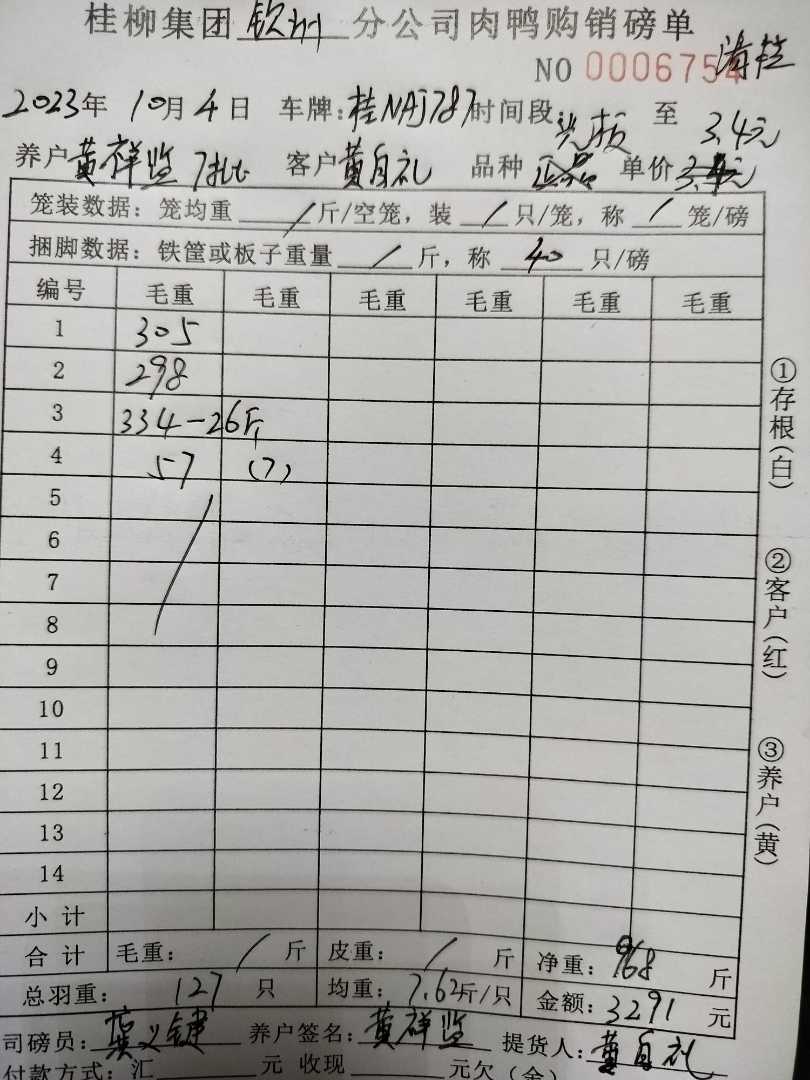 桂柳集团钦州分公司肉鸭购销磅单
清栏
NO 0006754
2023年10月4日 车牌:桂NAJ787 时间段 至
3.4元
养户黄祥监 7批 客户黄自礼 品种正品 单价
笼装数据:笼均重 / 斤/空笼,装 / 只/笼,称 / 笼/磅
捆脚数据:铁筐或板子重量 / 斤,称 40 只/磅
编号 毛重 毛重 毛重 毛重 毛重 毛重
1 305
2 298
3 334-26斤
4 57 (7)
5
6
7
8
9
10
11
12
13
14
小计
合计 毛重: / 斤 皮重: / 斤 净重:968 斤
总羽重: 127 只 均重:7.62斤/只 金额:3291 元
司磅员: 养户签名:黄祥监 提货人:黄自礼
付款方式:汇 元 收现 元欠(余)
①存根(白)
②客户(红)
③养户(黄)